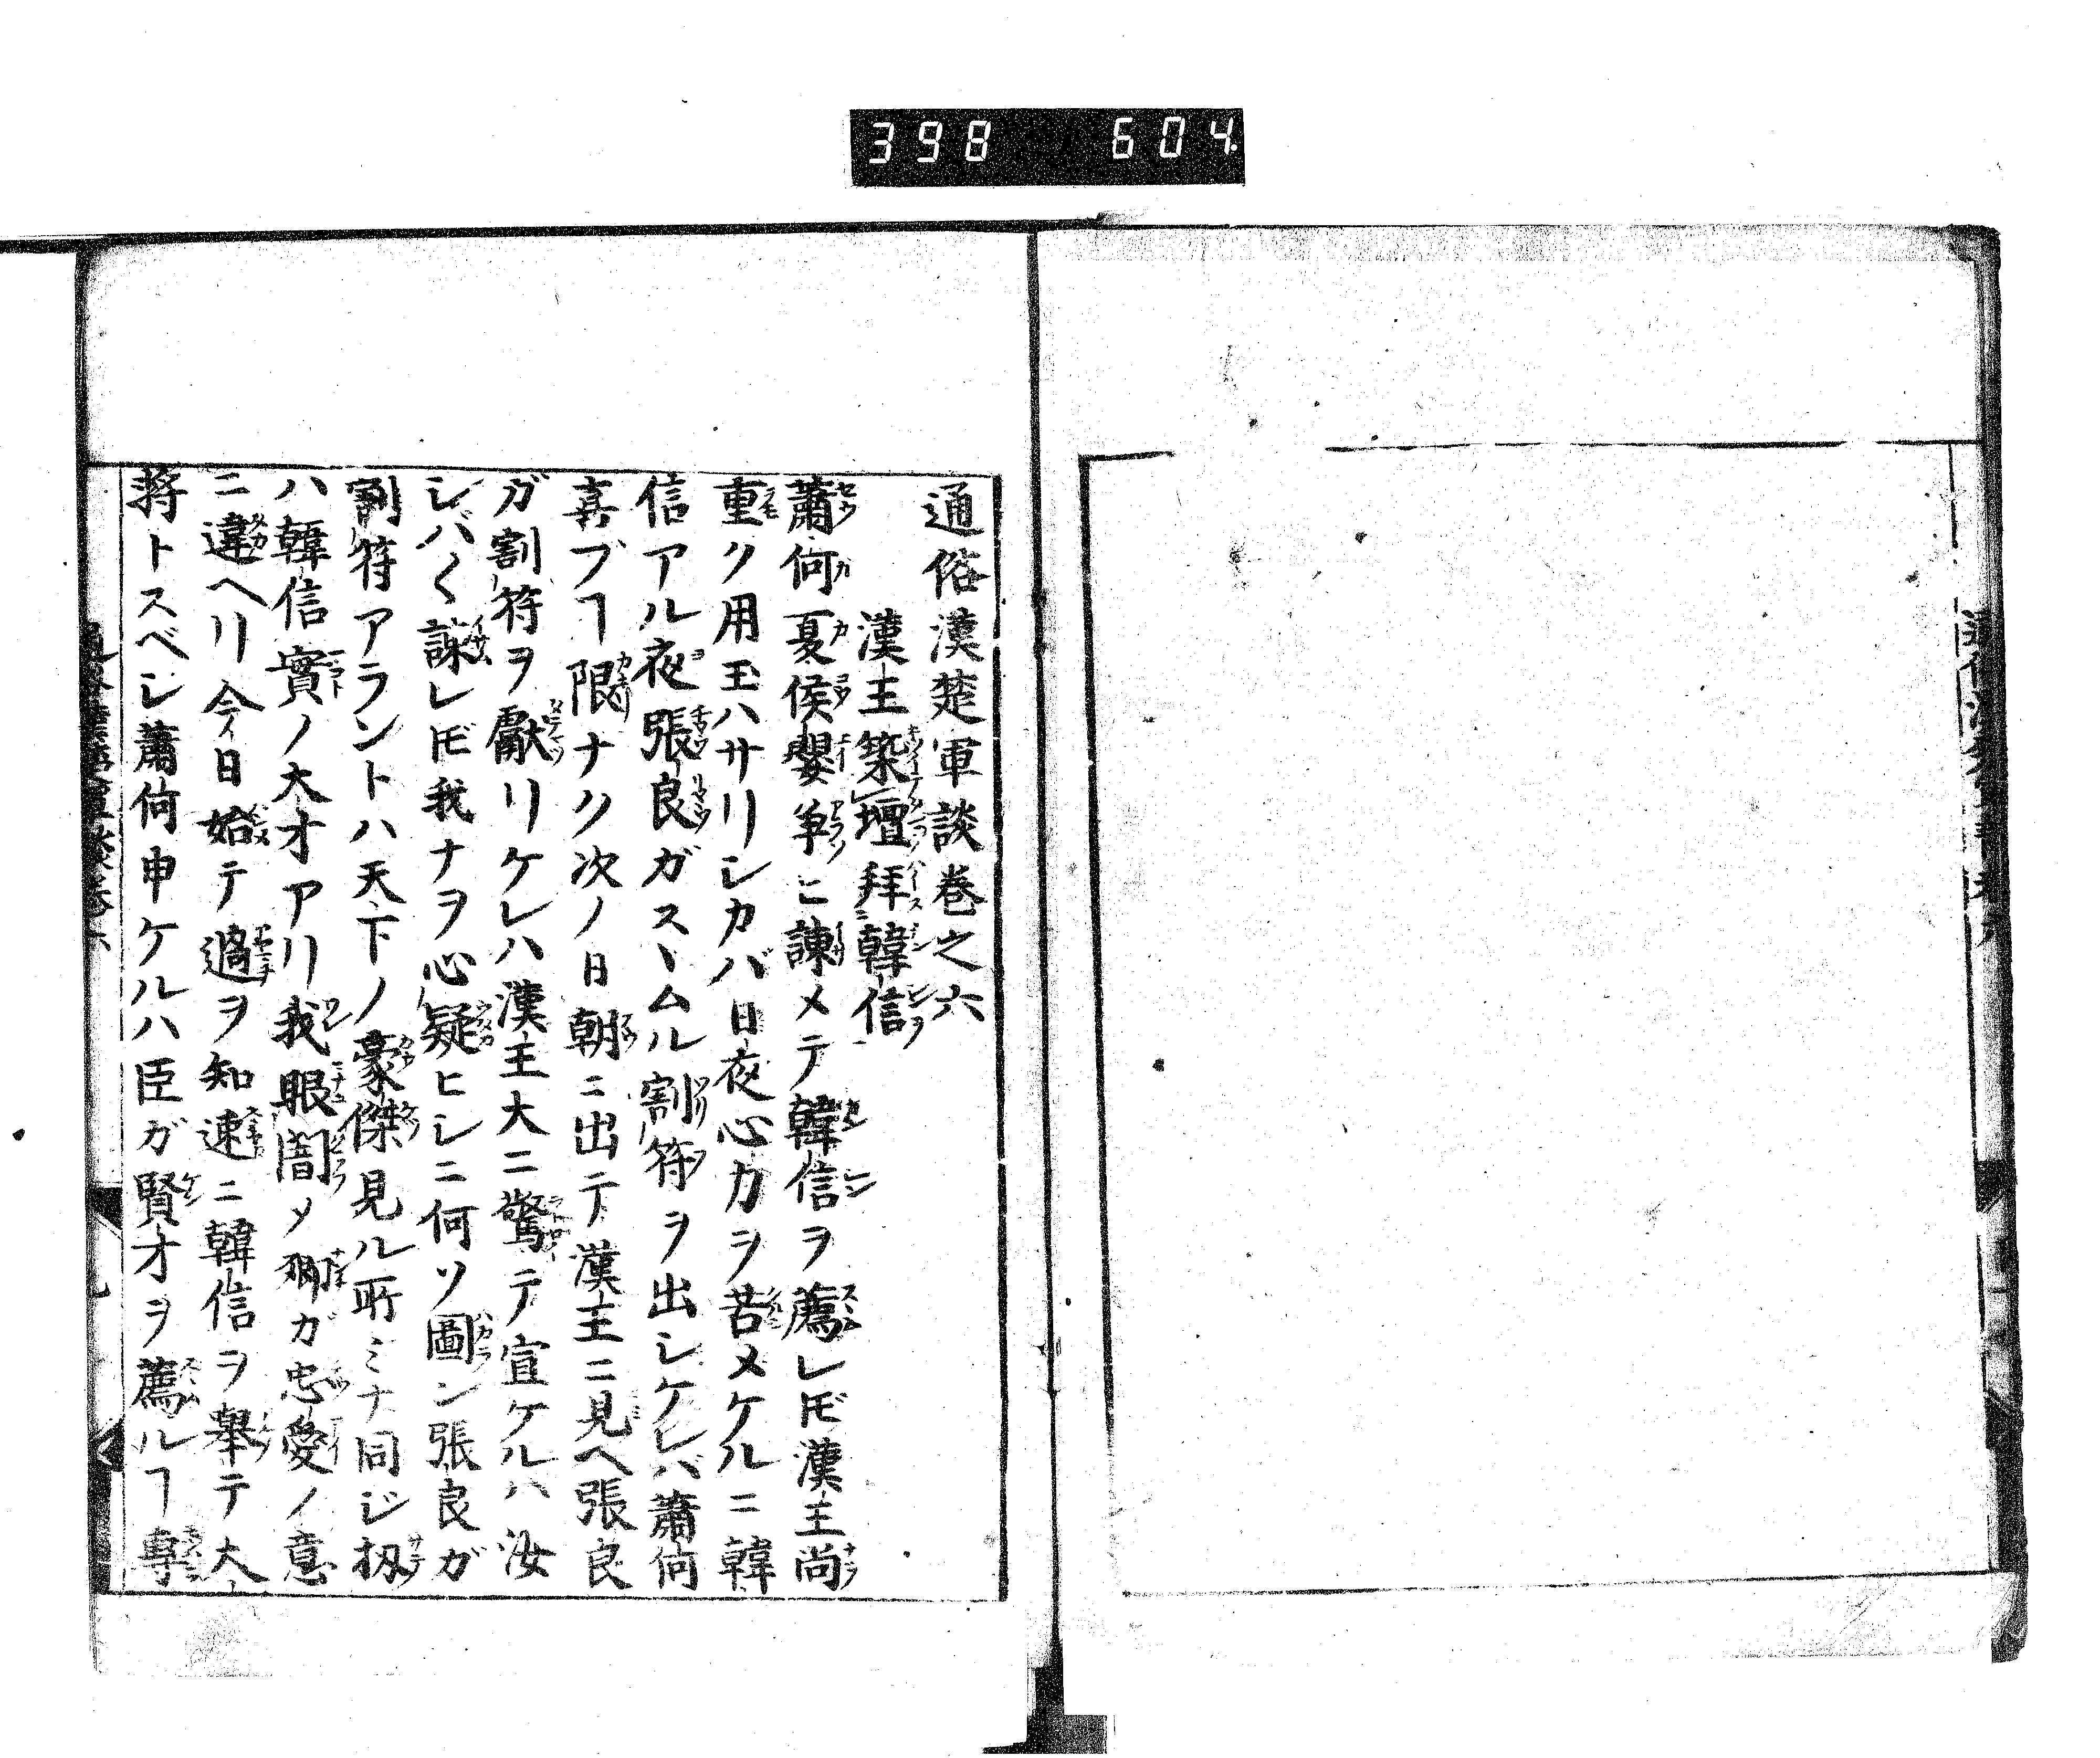 398 604.
通俗漢楚軍談巻之六
漢王築壇拜韓信
蕭何夏侯嬰爭ヒ諫メテ韓信ヲ薦レ𪜈漢王尚
重ク用玉ハサリシカバ日夜心力ヲ苦メケルニ韓
信アル夜張良ガスヽムル割符ヲ出シケレバ蕭何
喜ブヿ限ナク次ノ日朝ニ出テ漢王ニ見ヘ張良
ガ割符ヲ獻リケレハ漢王大ニ驚テ宣ケルハ汝
シバ〱諫レ𪜈我ナヲ心疑ヒシニ何ソ圖ン張良ガ
割符アラントハ天下ノ豪傑見ル所ミナ同ジ扨
ハ韓信實ノ大才アリ我眼闇メ卿ガ忠愛ノ意
ニ違ヘリ今日始テ過ヲ知速ニ韓信ヲ舉テ大
將トスベシ蕭何申ケルハ臣ガ賢才ヲ薦ルヿ專